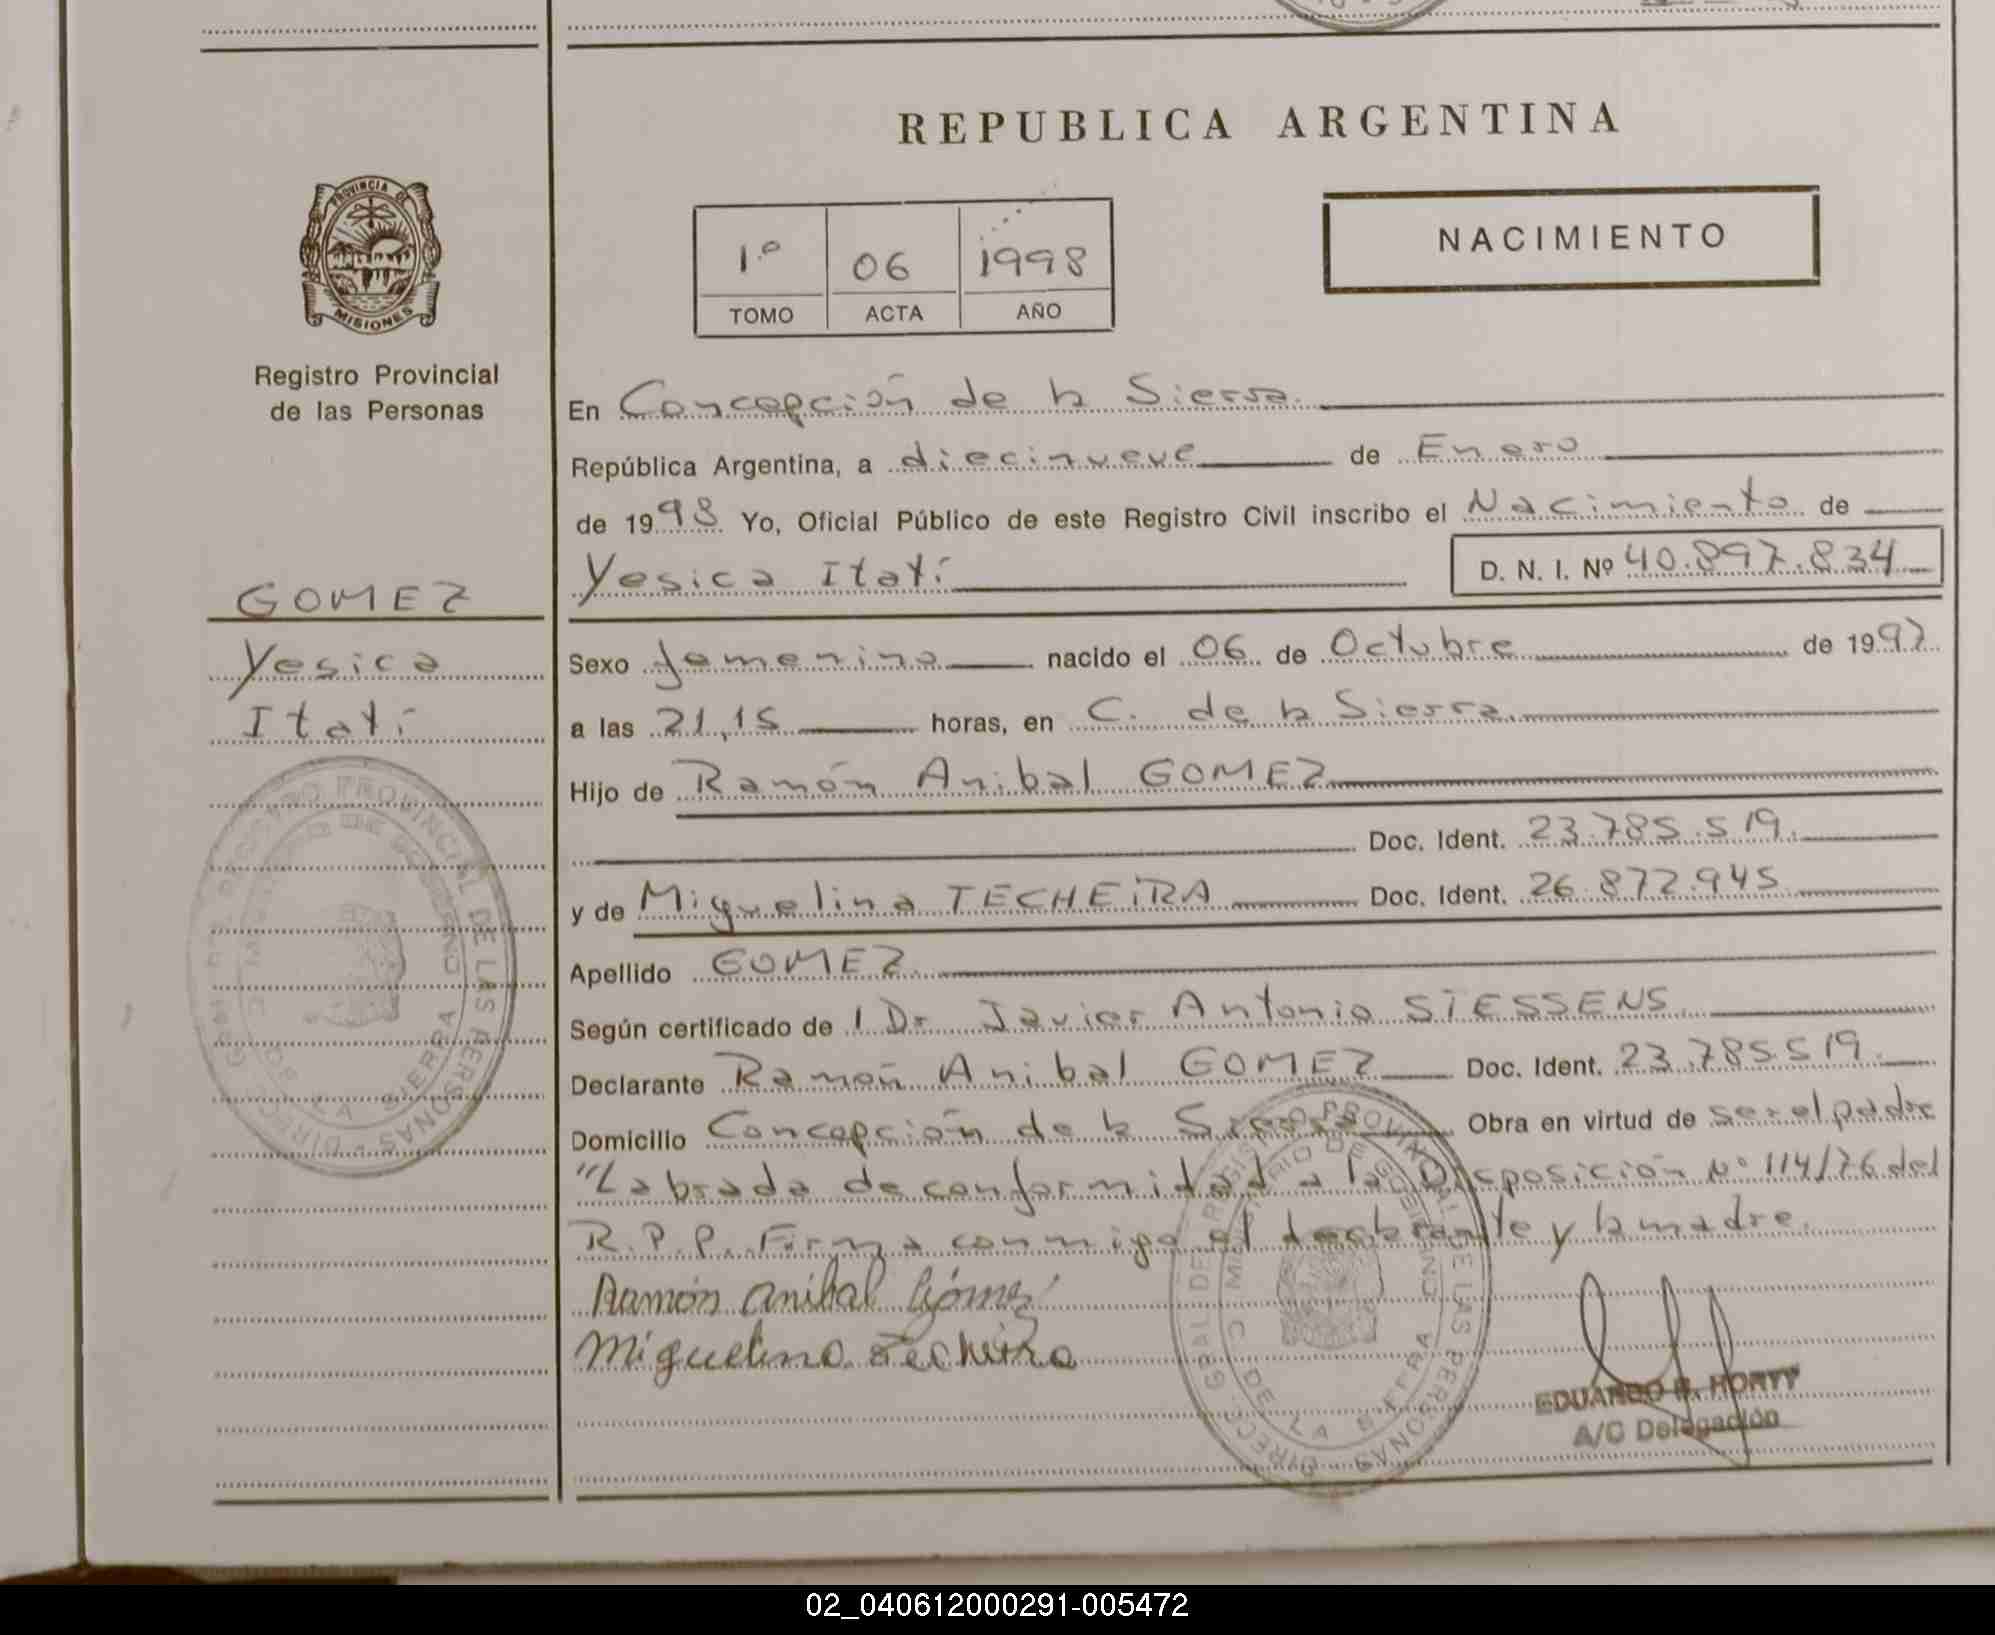 REPUBLICA ARGENTINA
PROVINCIA DE
MISIONES
Registro Provincial
de las Personas
1º 06 1998
TOMO ACTA AÑO
NACIMIENTO
En Concepción de la Sierra
República Argentina, a diecinueve de Enero
de 1998 Yo, Oficial Público de este Registro Civil inscribo el Nacimiento de
Yesica Itatí D. N. I. Nº 40.897.834
GOMEZ
Yesica
Itatí
Sexo femenino nacido el 06 de Octubre de 1997
a las 21,15 horas, en C. de la Sierra
Hijo de Ramón Anibal GOMEZ
Doc. Ident. 23.785.519
y de Miguelina TECHEiRA Doc. Ident. 26.872.945
Apellido GOMEZ
Según certificado de l Dr Javier Antonio SiESSENS
Declarante Ramón Anibal GOMEZ Doc. Ident. 23.785.519
Domicilio Concepción de la Sierra Obra en virtud de ser el padre
"Labrada de conformidad a la Disposición Nº 114/76 del
R.P.P. Firma conmigo el declarante y la madre.
Ramón Anibal Gómez
Miguelina Techeira
EDUARDO R. HORTT
A/C Delegación
DIREC. GRAL DE REGISTRO PROVINCIAL DE LAS PERSONAS
MINISTERIO DE GOBIERNO
C. DE LA SIERRA
DIREC. GRAL DE REGISTRO PROVINCIAL DE LAS PERSONAS
MINISTERIO DE GOBIERNO
C. DE LA SIERRA
02_040612000291-005472